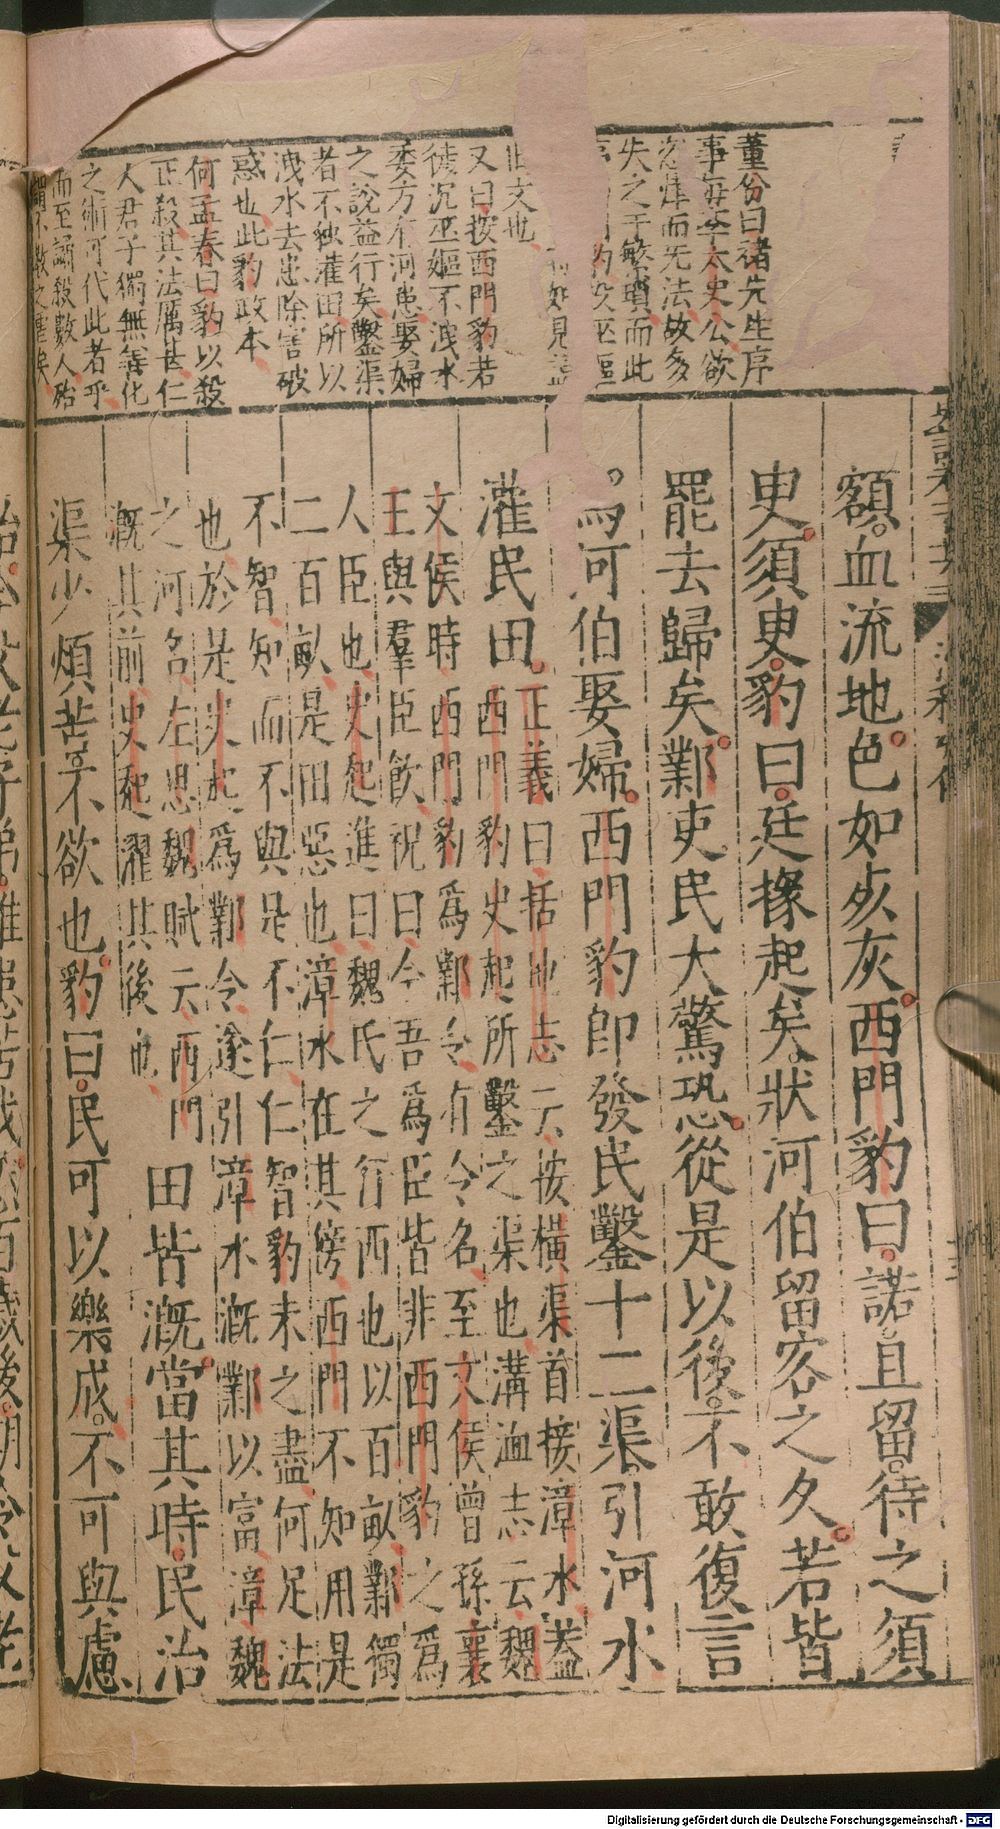 董份曰禇先生序
事每李太史公欲
而无法故多
失之于繁瑣而此
豹投巫嫗
如見
旧文也
又曰按西門豹若
徒沉巫嫗不洩水
委方有河患娶婦
之說益行矣鑿渠
者不独灌田所以
洩水去患除害破
惑也此豹政本
何孟春曰豹以殺
正殺其法厲甚仁
人君子獨無善化
之術可代此者乎
而至誦殺數人殆
不教之虐矣
額血流地色如死灰西門豹曰諾且留待之須
臾須臾豹曰廷掾起矣狀河伯留客之久若皆
罷去歸矣鄴吏民大驚恐從是以後不敢復言
爲河伯娶婦西門豹即發民鑿十二渠引河水
灌民田正義曰括地志云按橫渠首接漳水蓋
西門豹史起所鑿之渠也溝洫志云魏
文侯時西門豹爲鄴令有令名至文侯曾孫襄
王與羣臣飲祝曰今吾爲臣皆非西門豹之爲
人臣也史起進曰魏氏之行西也以百畝鄴獨
二百畝是田惡也漳水在其傍西門不知用是
不智知而不與是不仁仁智豹未之盡何足法
也於是史起爲鄴令遂引漳水漑鄴以富漳魏
之河名左思魏賦云西門
漑其前史起濯其後也
田皆漑當其時民治
渠少煩苦不欲也豹曰民可以樂成不可與慮
Digitalisierung gefördert durch die Deutsche Forschungsgemeinschaft - DFG